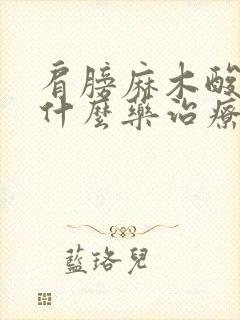 肩膀麻木酸
什麼藥治療
藍珞兒